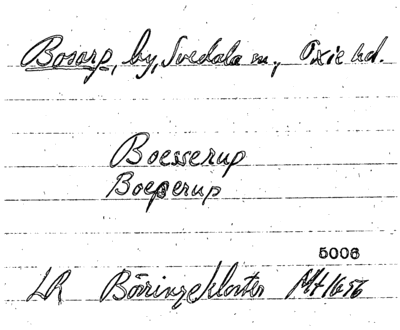 Bosarp, by, Svedala sn, Oxie hd.
Boesserup
Boeserup
5006
LR Börringekloster Alt 1656